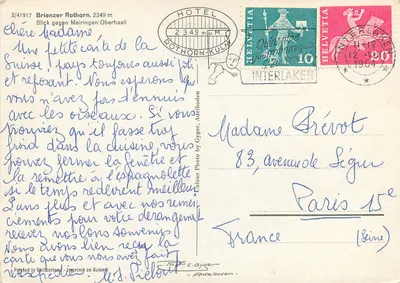 2/41917 Brienzer Rothorn, 2349 m
Blick gegen Meiringen/Oberhasli
HOTEL
2349 m ü M
ROTHORN-KULM
HELVETIA 10
HELVETIA 20
INTERLAKEN
INTERLAKEN
Chère Madame
Une petite carte de la
Suisse pays toujours aussi joli
et reposant. Nous espérons que
vous n'avez pas d'ennuis
avec les oiseaux. Si vous
trouviez qu'il fasse trop
froid dans la cuisine, vous
pouvez fermer la fenêtre et
la remettre à l'espagnolette
si le temps redevient meilleur
Sans plus et avec nos remer-
ciements pour votre dérangement
recevez nos bons souvenirs
Nous avons bien reçu la
carte que vous nous avez fait
Madame Prévot
83, avenue de Ségur
Paris 15e
France (Seine)
Colour Photo by Gyger, Adelboden
Printed in Switzerland - Imprimé en Suisse
E. Gyger
Adelboden